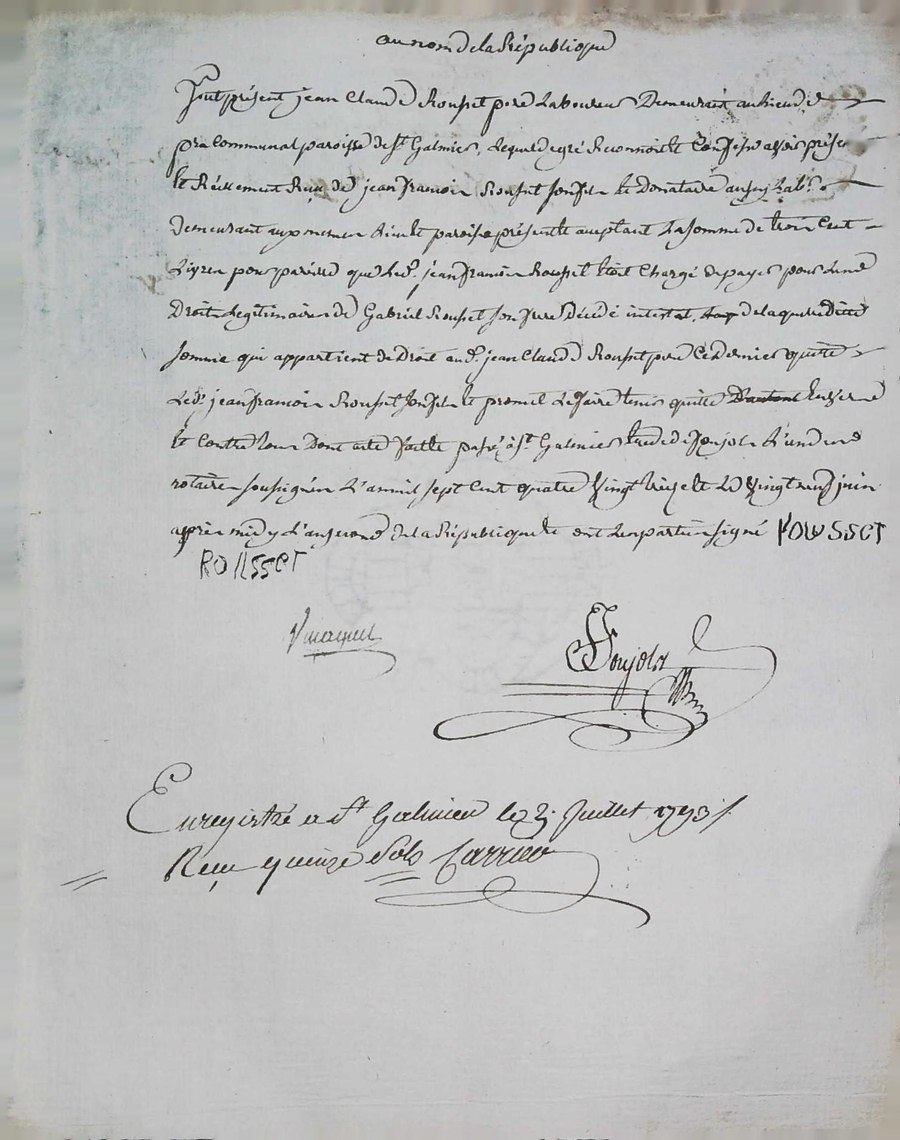 au nom de la République
fut présent jean Claude Rousset pere Laboureur Demeurant au lieu de
pra Communal paroisse de st Galmier, Lequel de gré Reconnoit et Confesse avoir présen
et Réellement Reçu de jean francois Rousset son fils et Donataire aussy Labr.
demeurant au meme Lieu et paroisse présent et acceptant La somme de trois Cent
Livres pour pareille que Led. jean francois Rousset etoit Chargé de payer pour Le
Droit Legitimaire de Gabriel Rousset son frere décédé intestat, de laquelle ditte
somme qui appartient de Droit aud. jean Claude Rousset pere Ce dernier quitte
Led. jean francois Rousset son fils et promet Le faire tenir quitte Envers
et Contre tous Dont acte fait et passé à st. Galmier Etude de Ponjols L'un des
notaires soussignés L'an mil sept Cent quatre Vingt treize et Le Vingt neuf juin
après midy L'an second de La République et ont Les parties signé ROUSSET
ROUSSET
Enregistré a St Galmier le 3. Juillet 1793
Reçu quinze Sols